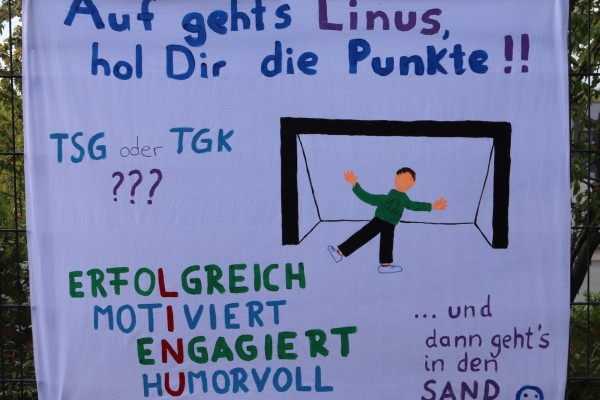 Auf gehts Linus,
hol Dir die Punkte!!
TSG oder TGK
???
12
ERFOLGREICH
MOTIVIERT
ENGAGIERT
HUMORVOLL
... und
dann geht's
in den
SAND